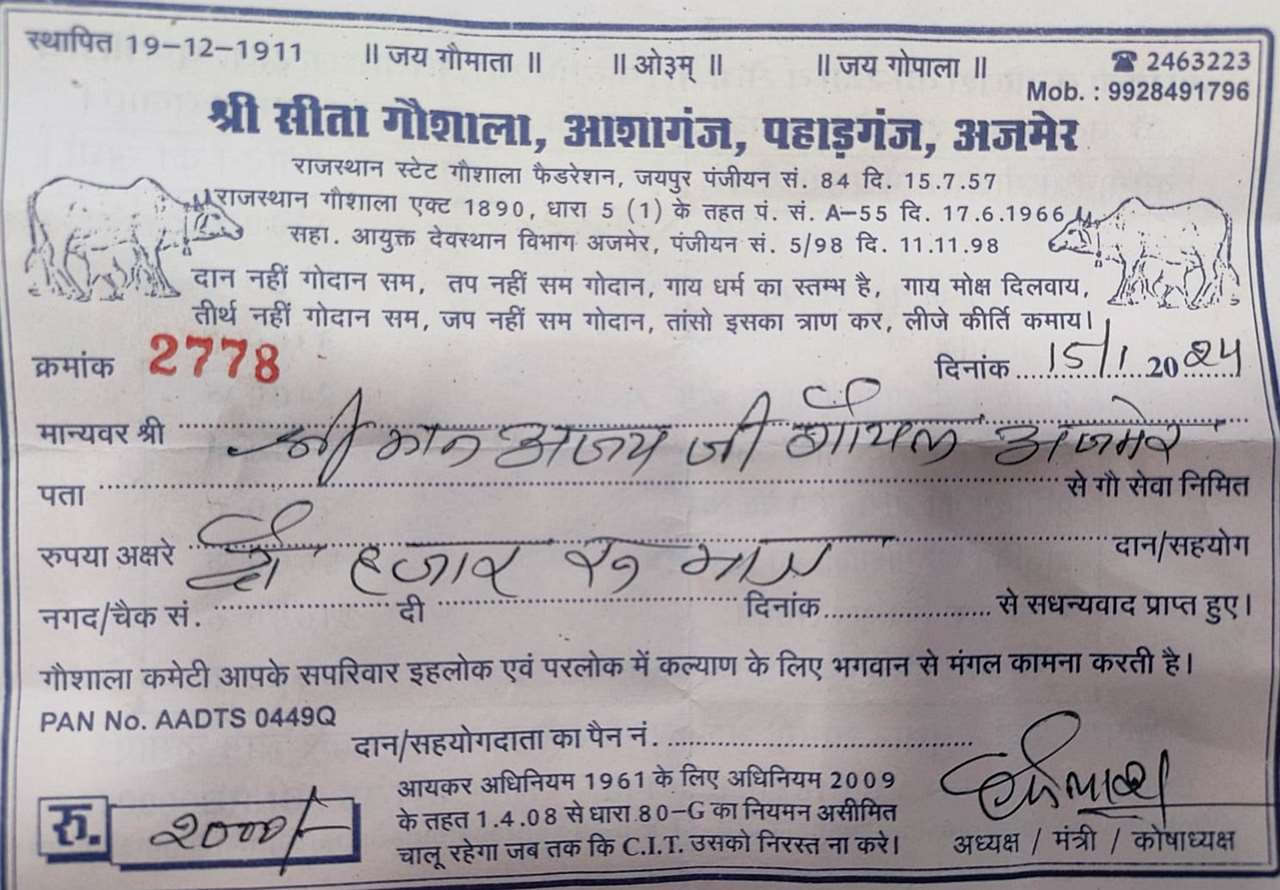 स्थापित 19-12-1911 ॥ जय गौमाता ॥ ॥ ओ३म् ॥ ॥ जय गोपाला ॥ ☎ 2463223
Mob. : 9928491796
श्री सीता गौशाला, आशागंज, पहाड़गंज, अजमेर
राजस्थान स्टेट गौशाला फैडरेशन, जयपुर पंजीयन सं. 84 दि. 15.7.57
राजस्थान गौशाला एक्ट 1890, धारा 5 (1) के तहत पं. सं. A-55 दि. 17.6.1966
सहा. आयुक्त देवस्थान विभाग अजमेर, पंजीयन सं. 5/98 दि. 11.11.98
दान नहीं गोदान सम, तप नहीं सम गोदान, गाय धर्म का स्तम्भ है, गाय मोक्ष दिलवाय,
तीर्थ नहीं गोदान सम, जप नहीं सम गोदान, तांसो इसका त्राण कर, लीजे कीर्ति कमाय।
क्रमांक 2778 दिनांक 15/1 2024
मान्यवर श्री श्री मान अजय जी गोयल अजमेर
पता से गौ सेवा निमित
रुपया अक्षरे दो हजार रु मात्र दान/सहयोग
नगद/चैक सं. दी दिनांक से सधन्यवाद प्राप्त हुए।
गौशाला कमेटी आपके सपरिवार इहलोक एवं परलोक में कल्याण के लिए भगवान से मंगल कामना करती है।
PAN No. AADTS 0449Q
दान/सहयोगदाता का पैन नं.
आयकर अधिनियम 1961 के लिए अधिनियम 2009
के तहत 1.4.08 से धारा 80-G का नियमन असीमित
चालू रहेगा जब तक कि C.I.T. उसको निरस्त ना करे।
रु. 2000/-
अध्यक्ष / मंत्री / कोषाध्यक्ष